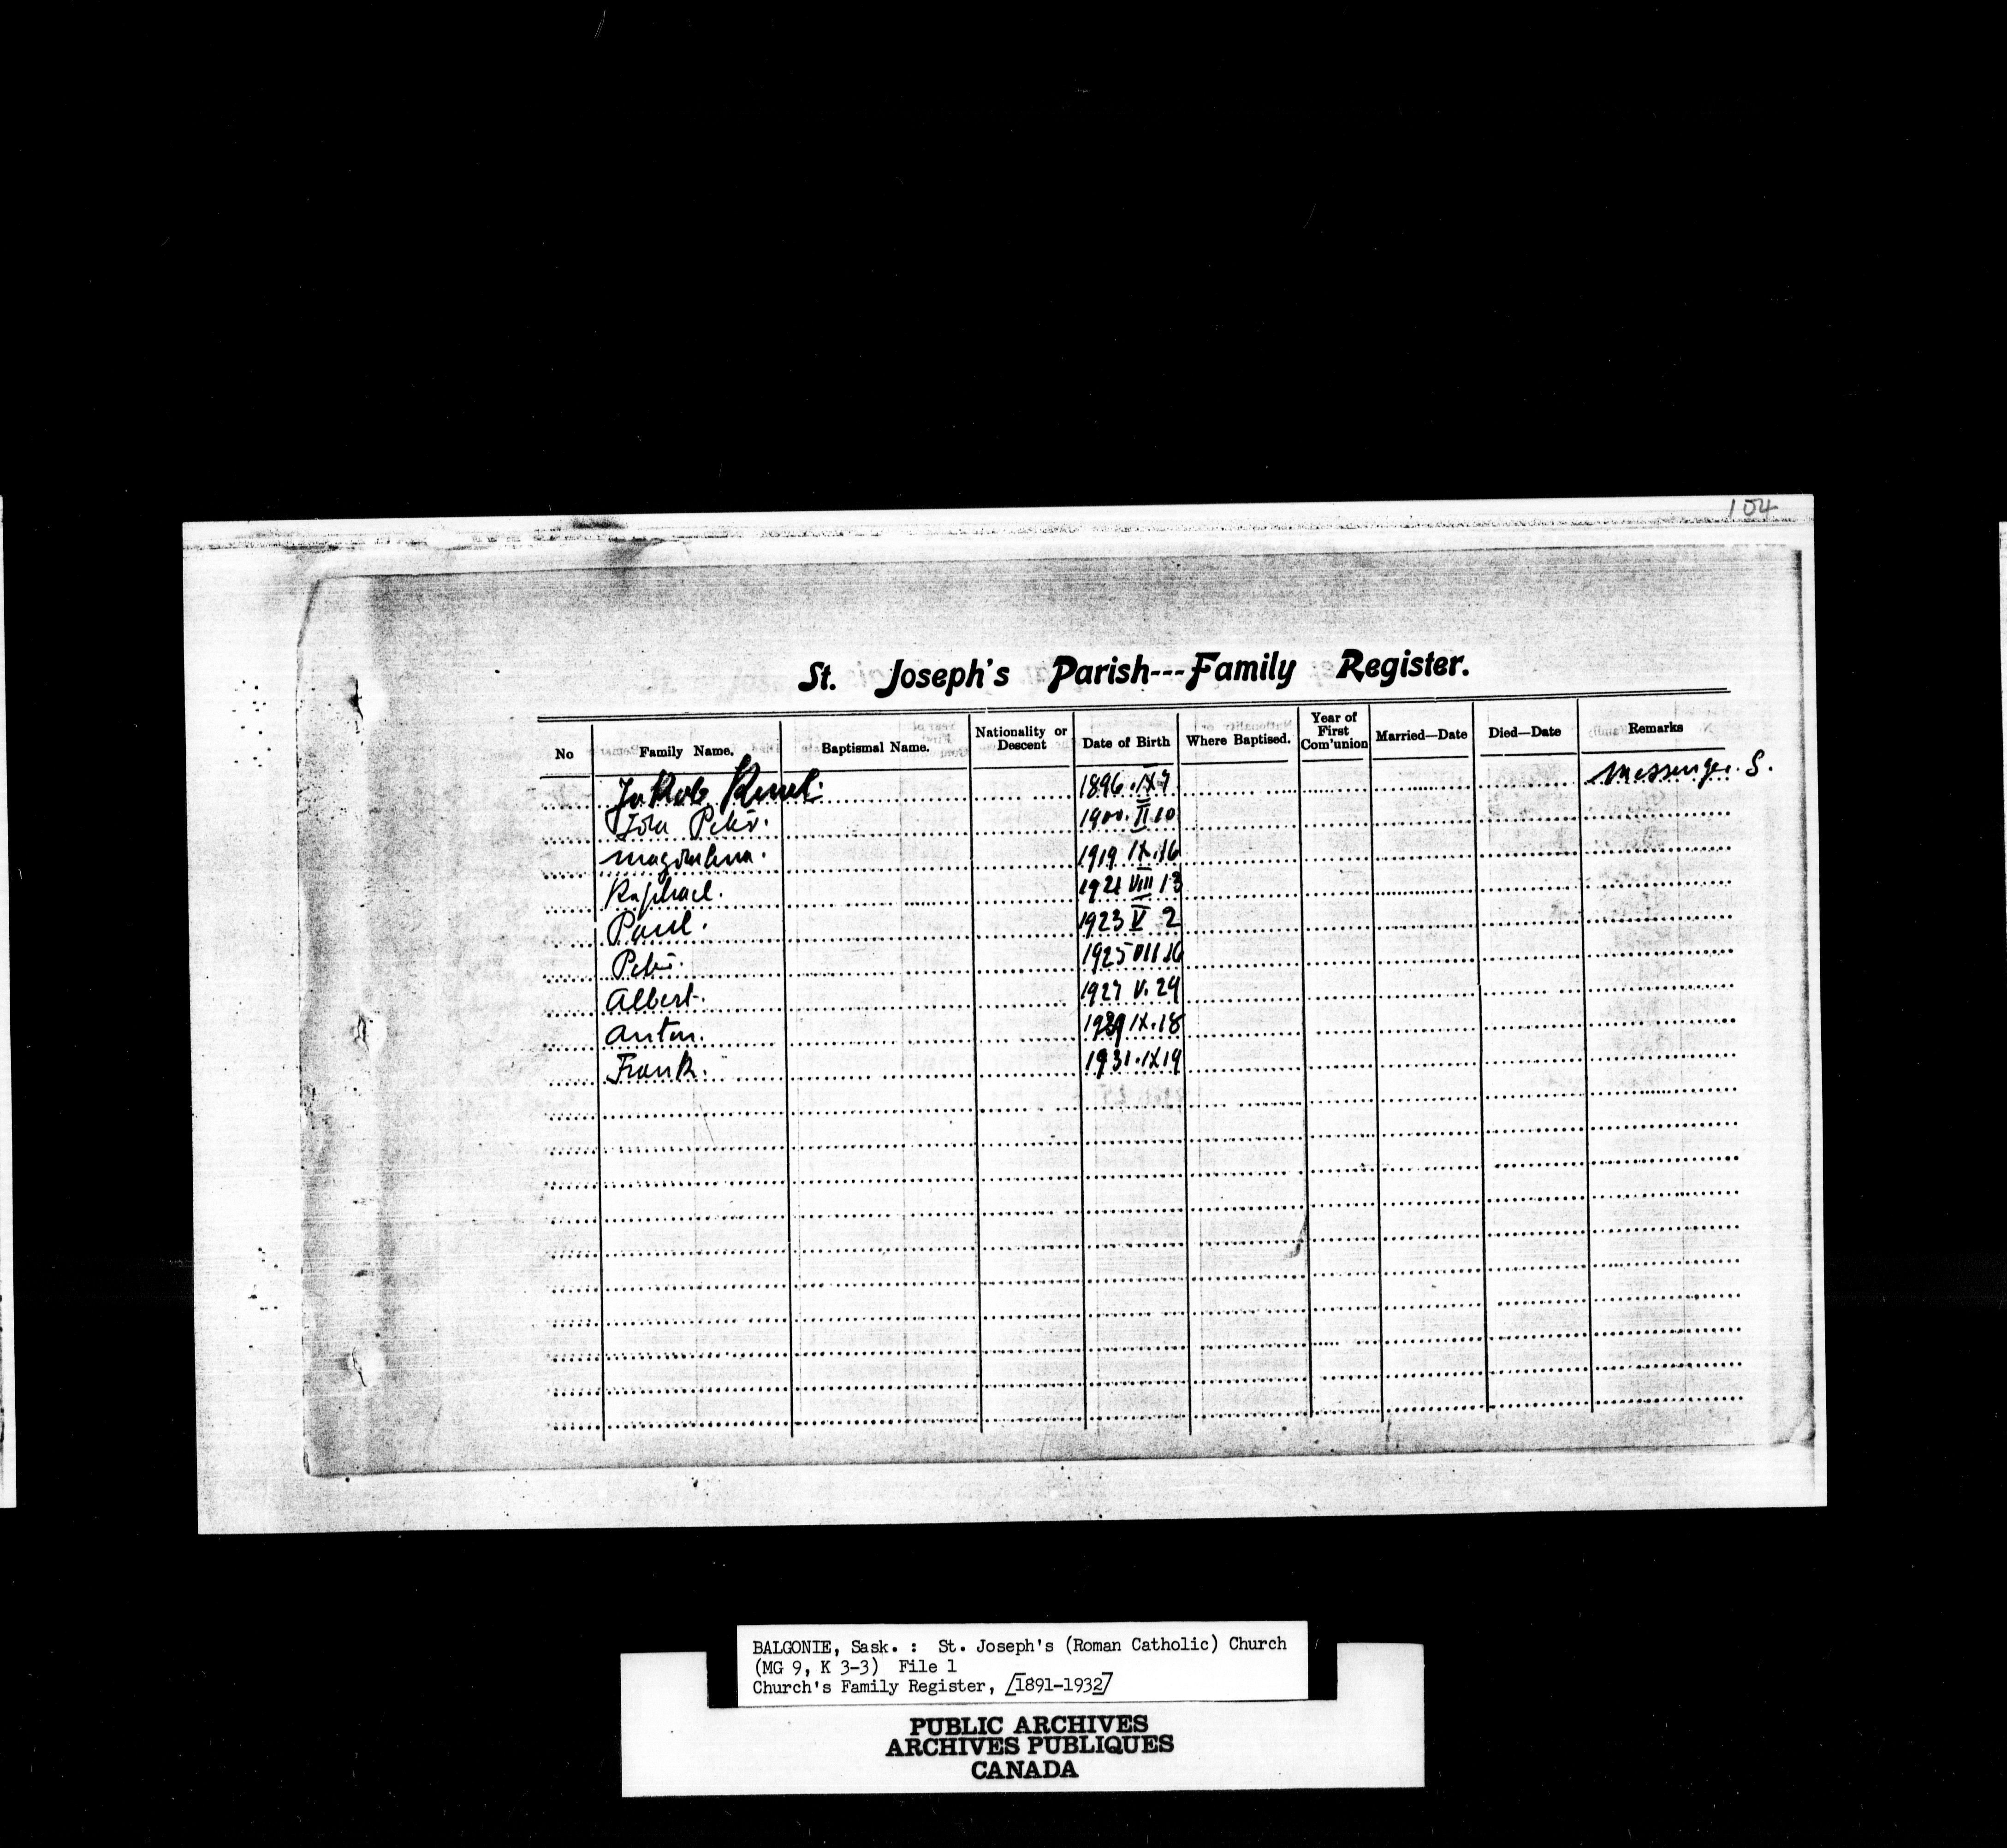 104
St. Joseph's Parish---Family Register.
No Family Name. Baptismal Name. Nationality or Descent Date of Birth Where Baptised. Year of First Com'union Married—Date Died—Date Remarks
Jakob 1896.IX7 Messenger. S.
Peter. 1900.II10
Magdalena. 1919 IX.16
Raphael. 1921 VIII 13
Paul. 1923 V 2
Peter. 1925 VII 16
Albert. 1927 V. 29
Anton. IX.18
Frank. 1931.IX19
BALGONIE, Sask. : St. Joseph's (Roman Catholic) Church
(MG 9, K 3-3) File 1
Church's Family Register, [1891-1932]
PUBLIC ARCHIVES
ARCHIVES PUBLIQUES
CANADA